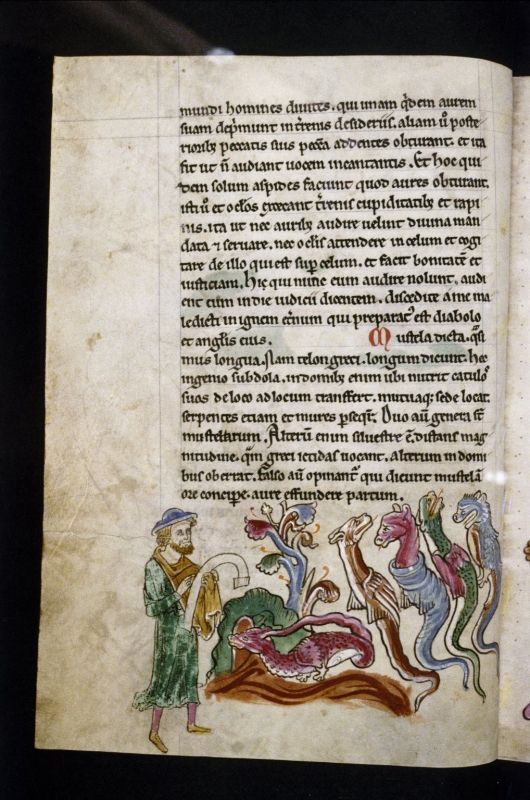 mundi homines divites. qui unam q̄dem aurem
suam dep̄munt in t̄renis desideriis. aliam ū poste
riorib; peccatis suis pecc̄a addentes obturant. et ita
fit ut ñ audiant uocem incantantis. Et hoc qui
dem solum aspides faciunt quod aures obturant.
isti ū et oc̄los excecant t̄renis cupiditatib; et rapi
nis. ita ut nec aurib; audire uelint diuina man
data ⁊ seruare. nec oc̄lis attendere in celum et cogi
tare de illo qui est sup̄ celum. et facit bonitatē et
iusticiam. Hic qui nunc eum audire nolunt. audi
ent eum in die iudicii dicentem. discedite a me ma
ledicti in ignem et̄num qui preparatꝰ est diabolo
et angl̄is eius. Mustela dicta. q̄si
mus longus. Nam telon greci. longum dicunt. hec
ingenio subdola. in domib; enim ubi nutrit catulos
suos de loco ad locum transfert. mutaq; sede locat.
serpentes etiam et mures p̄seqt̄. Duo aū genera st̄
mustelarum. Alterū enim siluestre ē. distans mag
nitudine. qm̄ greci ictidas uocant. alterum in domi
bus oberrat. Falso aū opinantᷓ qui dicunt mustelā
ore concip̄e. aure effundere partum.